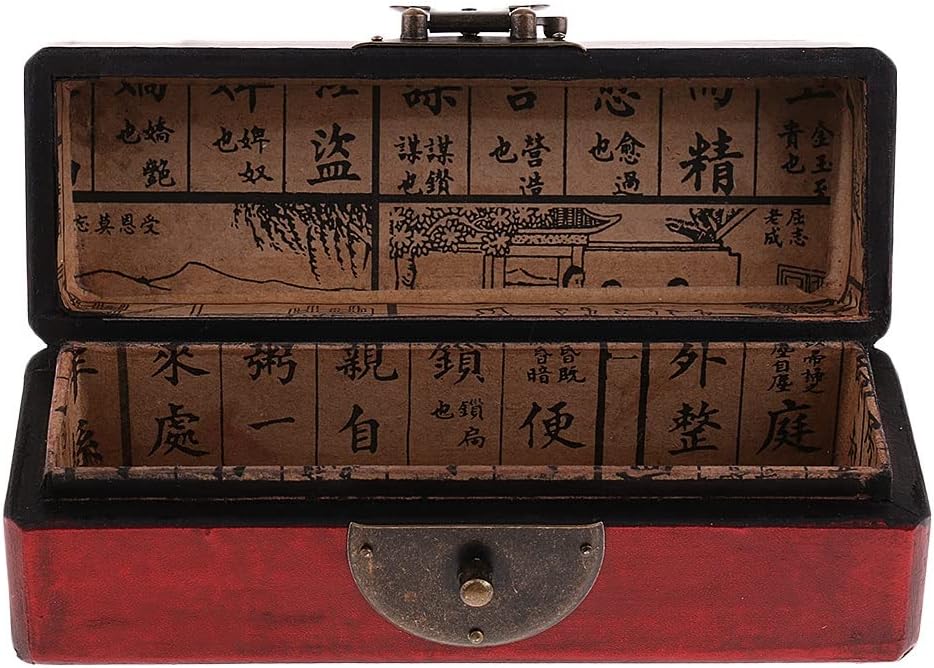 金玉玉
貴也
精
愈過
也
營造
也
謀鑽
謀也
盜
婢奴
也
嬌艷
也
屈志
老成
受恩莫忘
庭
外整
昏既
昏暗
便
鎖
鎖扃
也
親自
粥一
來處